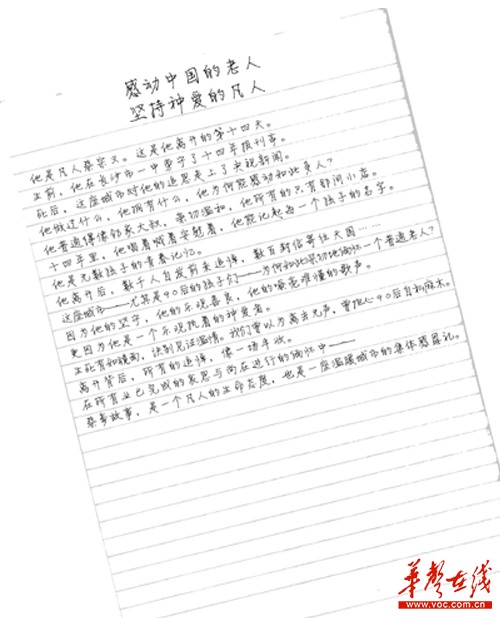 感动中国的老人
坚持神爱的凡人
他是凡人桑宗义。这是他离开的第十四天。
生前，他在长沙市一中卖守了十四年报刊亭。
死后，这座城市对他的追思走上了央视新闻。
他做过什么，他拥有什么，他为何能感动如此多人？
他普通得像邻家大叔，亲切温和，他所有的只有那间小店。
十四年里，他唱着喊着安慰着，他能记起每一个孩子的名字。
他是无数孩子的青春记忆。
他离开后，数千人自发前来追悼，数百封信寄往天国……
这座城市——尤其是90后的孩子们——为何如此深切地缅怀一个普通老人？
因为他的坚守，他的乐观善良，他的嘹亮难懂的歌声。
更因为他是一个乐观执着的神爱者。
生死有如镜面，诀别见证温情。我们曾以为离去无声，曾担心90后自私麻木。
离开背后，所有的追悼，像一场丰收。
在所有业已完成的哀思与尚在进行的缅怀中——
桑爹故事，是一个凡人的生命态度，也是一座温暖城市的集体感恩记。
华声在线
www.voc.com.cn